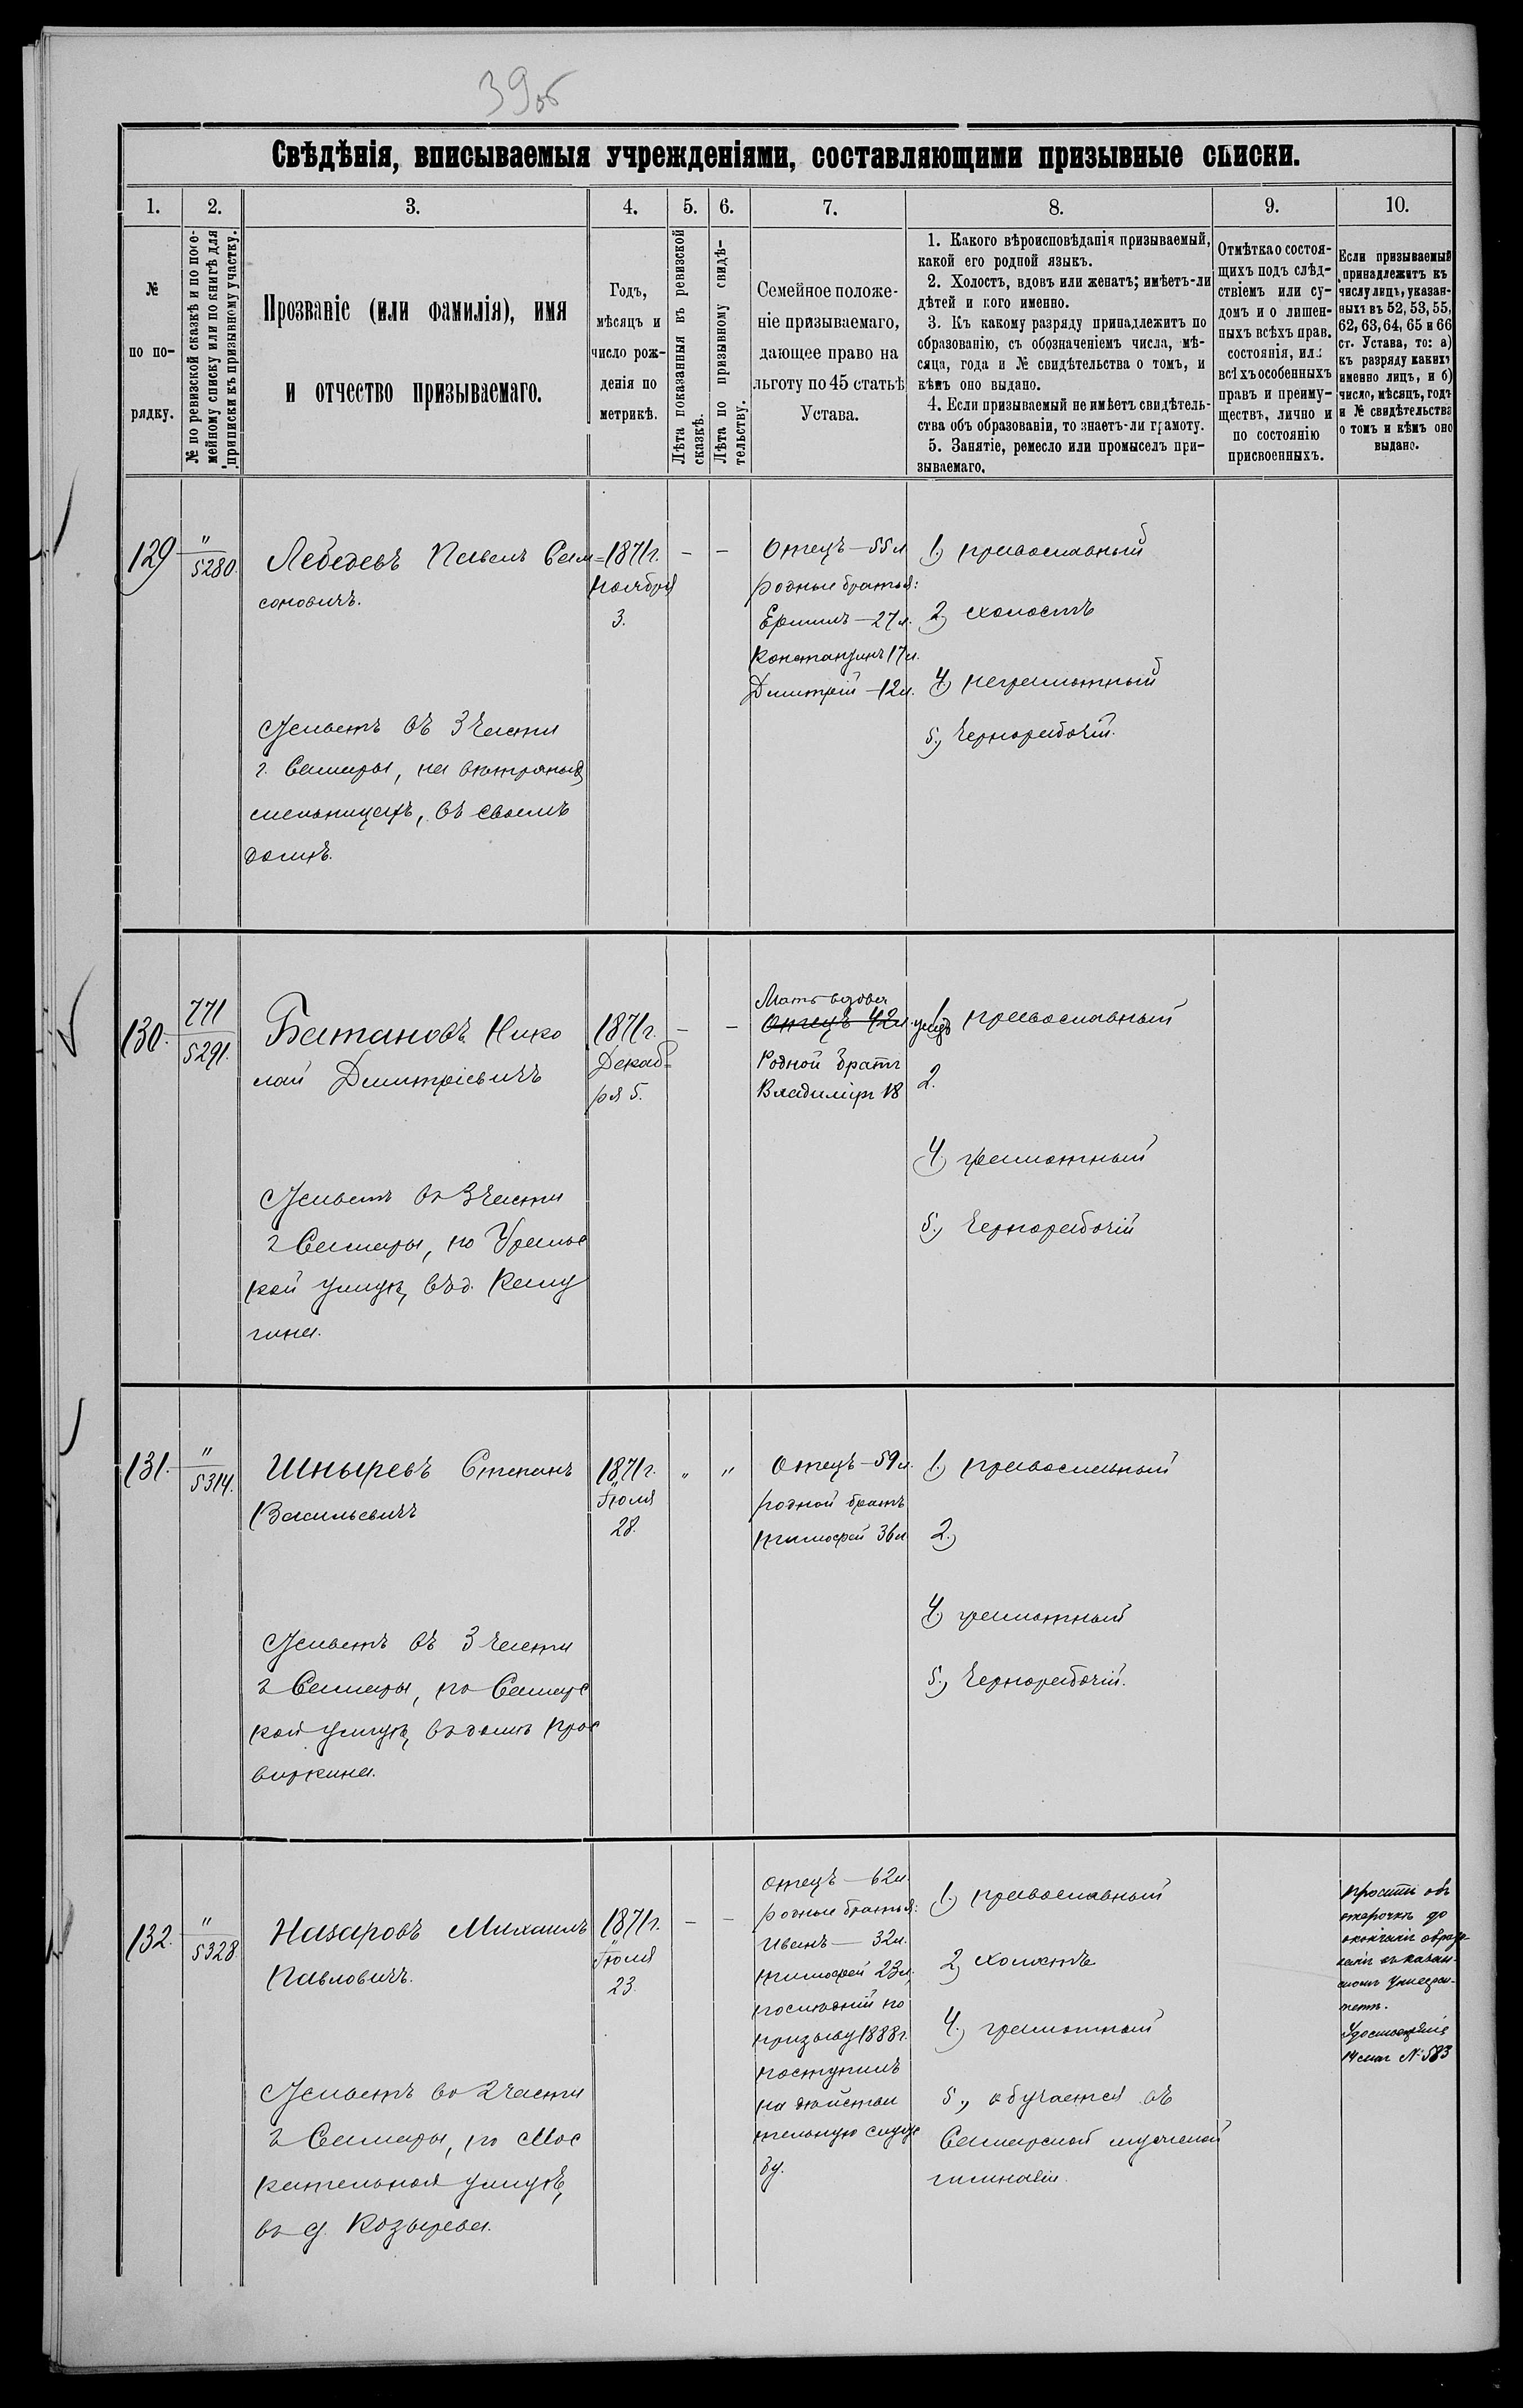 39об
Свѣдѣнія, вписываемыя учрежденіями, составляющими призывные списки.
1. 2. 3. 4. 5. 6. 7. 8. 9. 10.
№
по по-
рядку.
№ по ревизской сказкѣ и по посе-
мейному списку или по книгѣ для
приписки къ призывному участку.
Прозваніе (или фамилія), имя
и отчество призываемаго.
Годъ,
мѣсяцъ и
число рож-
денія по
метрикѣ.
Лѣта показанныя въ ревизской
сказкѣ.
Лѣта по призывному свидѣ-
тельству.
Семейное положе-
ніе призываемаго,
дающее право на
льготу по 45 статьѣ
Устава.
1. Какого вѣроисповѣданія призываемый,
какой его родной языкъ.
2. Холостъ, вдовъ или женатъ; имѣетъ-ли
дѣтей и кого именно.
3. Къ какому разряду принадлежитъ по
образованію, съ обозначеніемъ числа, мѣ-
сяца, года и № свидѣтельства о томъ, и
кѣмъ оно выдано.
4. Если призываемый не имѣетъ свидѣтель-
ства объ образованіи, то знаетъ-ли грамоту.
5. Занятіе, ремесло или промыселъ при-
зываемаго.
Отмѣтка о состоя-
щихъ подъ слѣд-
ствіемъ или су-
домъ и о лишен-
ныхъ всѣхъ прав.
состоянія, или
всѣхъ особенныхъ
правъ и преиму-
ществъ, лично и
по состоянію
присвоенныхъ.
Если призываемый
принадлежитъ къ
числу лицъ, указан-
ныхъ въ 52, 53, 55,
62, 63, 64, 65 и 66
ст. Устава, то: а)
къ разряду какихъ
именно лицъ, и б)
число, мѣсяцъ, годъ
и № свидѣтельства
о томъ и кѣмъ оно
выдано.
129
"
5280.
Лебедевъ Павелъ Сам=
соновичъ.
Живетъ въ 3 части
г. Самары, на вѣтряныхъ
мельницахъ, въ своемъ
домѣ.
1871г.
Ноября
3.
– –
Отецъ – 55 л
родные братья:
Ермилъ – 27 л.
Константинъ 17 л.
Димитрій – 12 л.
1) православный
2) холостъ
4) неграмотный
5., Чернорабочій.
130.
771
5291.
Батановъ Нико
лай Димитріевичъ
Живетъ въ 3 части
г Самары, по Уральс
кой улицѣ, въ д. Калу
гина.
1871г.
Декаб=
ря 5.
– –
Мать вдова
Отецъ 42 л.
Родной братъ
Владиміръ 18
1. православный
2.
4.) грамотный
5.) Чернорабочій
131.
"
5314.
Шныревъ Степанъ
Васильевичъ
Живетъ въ 3 части
г Самары, по Самарс
кой улицѣ, въ домѣ Прос
виркина.
1871г.
Іюля
28.
" "
Отецъ – 59 л.
родной братъ
Тимофей 36 л
1.) православный
2.)
4) грамотный
5., Чернорабочій.
132.
"
5328
Назаровъ Михаилъ
Павловичъ.
Живетъ во 2 части
г Самары, по Мос
кательной улицѣ,
въ д. Козырева.
1871г.
Іюля
23.
– –
отецъ – 62 л.
родные братья:
Иванъ – 32 л.
Тимофей 23 л,
послѣдній по
призыву 1888 г.
поступилъ
на дѣйстви
тельную служ
бу.
1.) православный
2) холостъ
4.) грамотный
5., обучается въ
Самарской мужской
гимназіи.
Проситъ объ
отсрочкѣ до
окончанія образо-
ванія въ Казан-
скомъ Универси-
тетѣ.
14 мая № 583